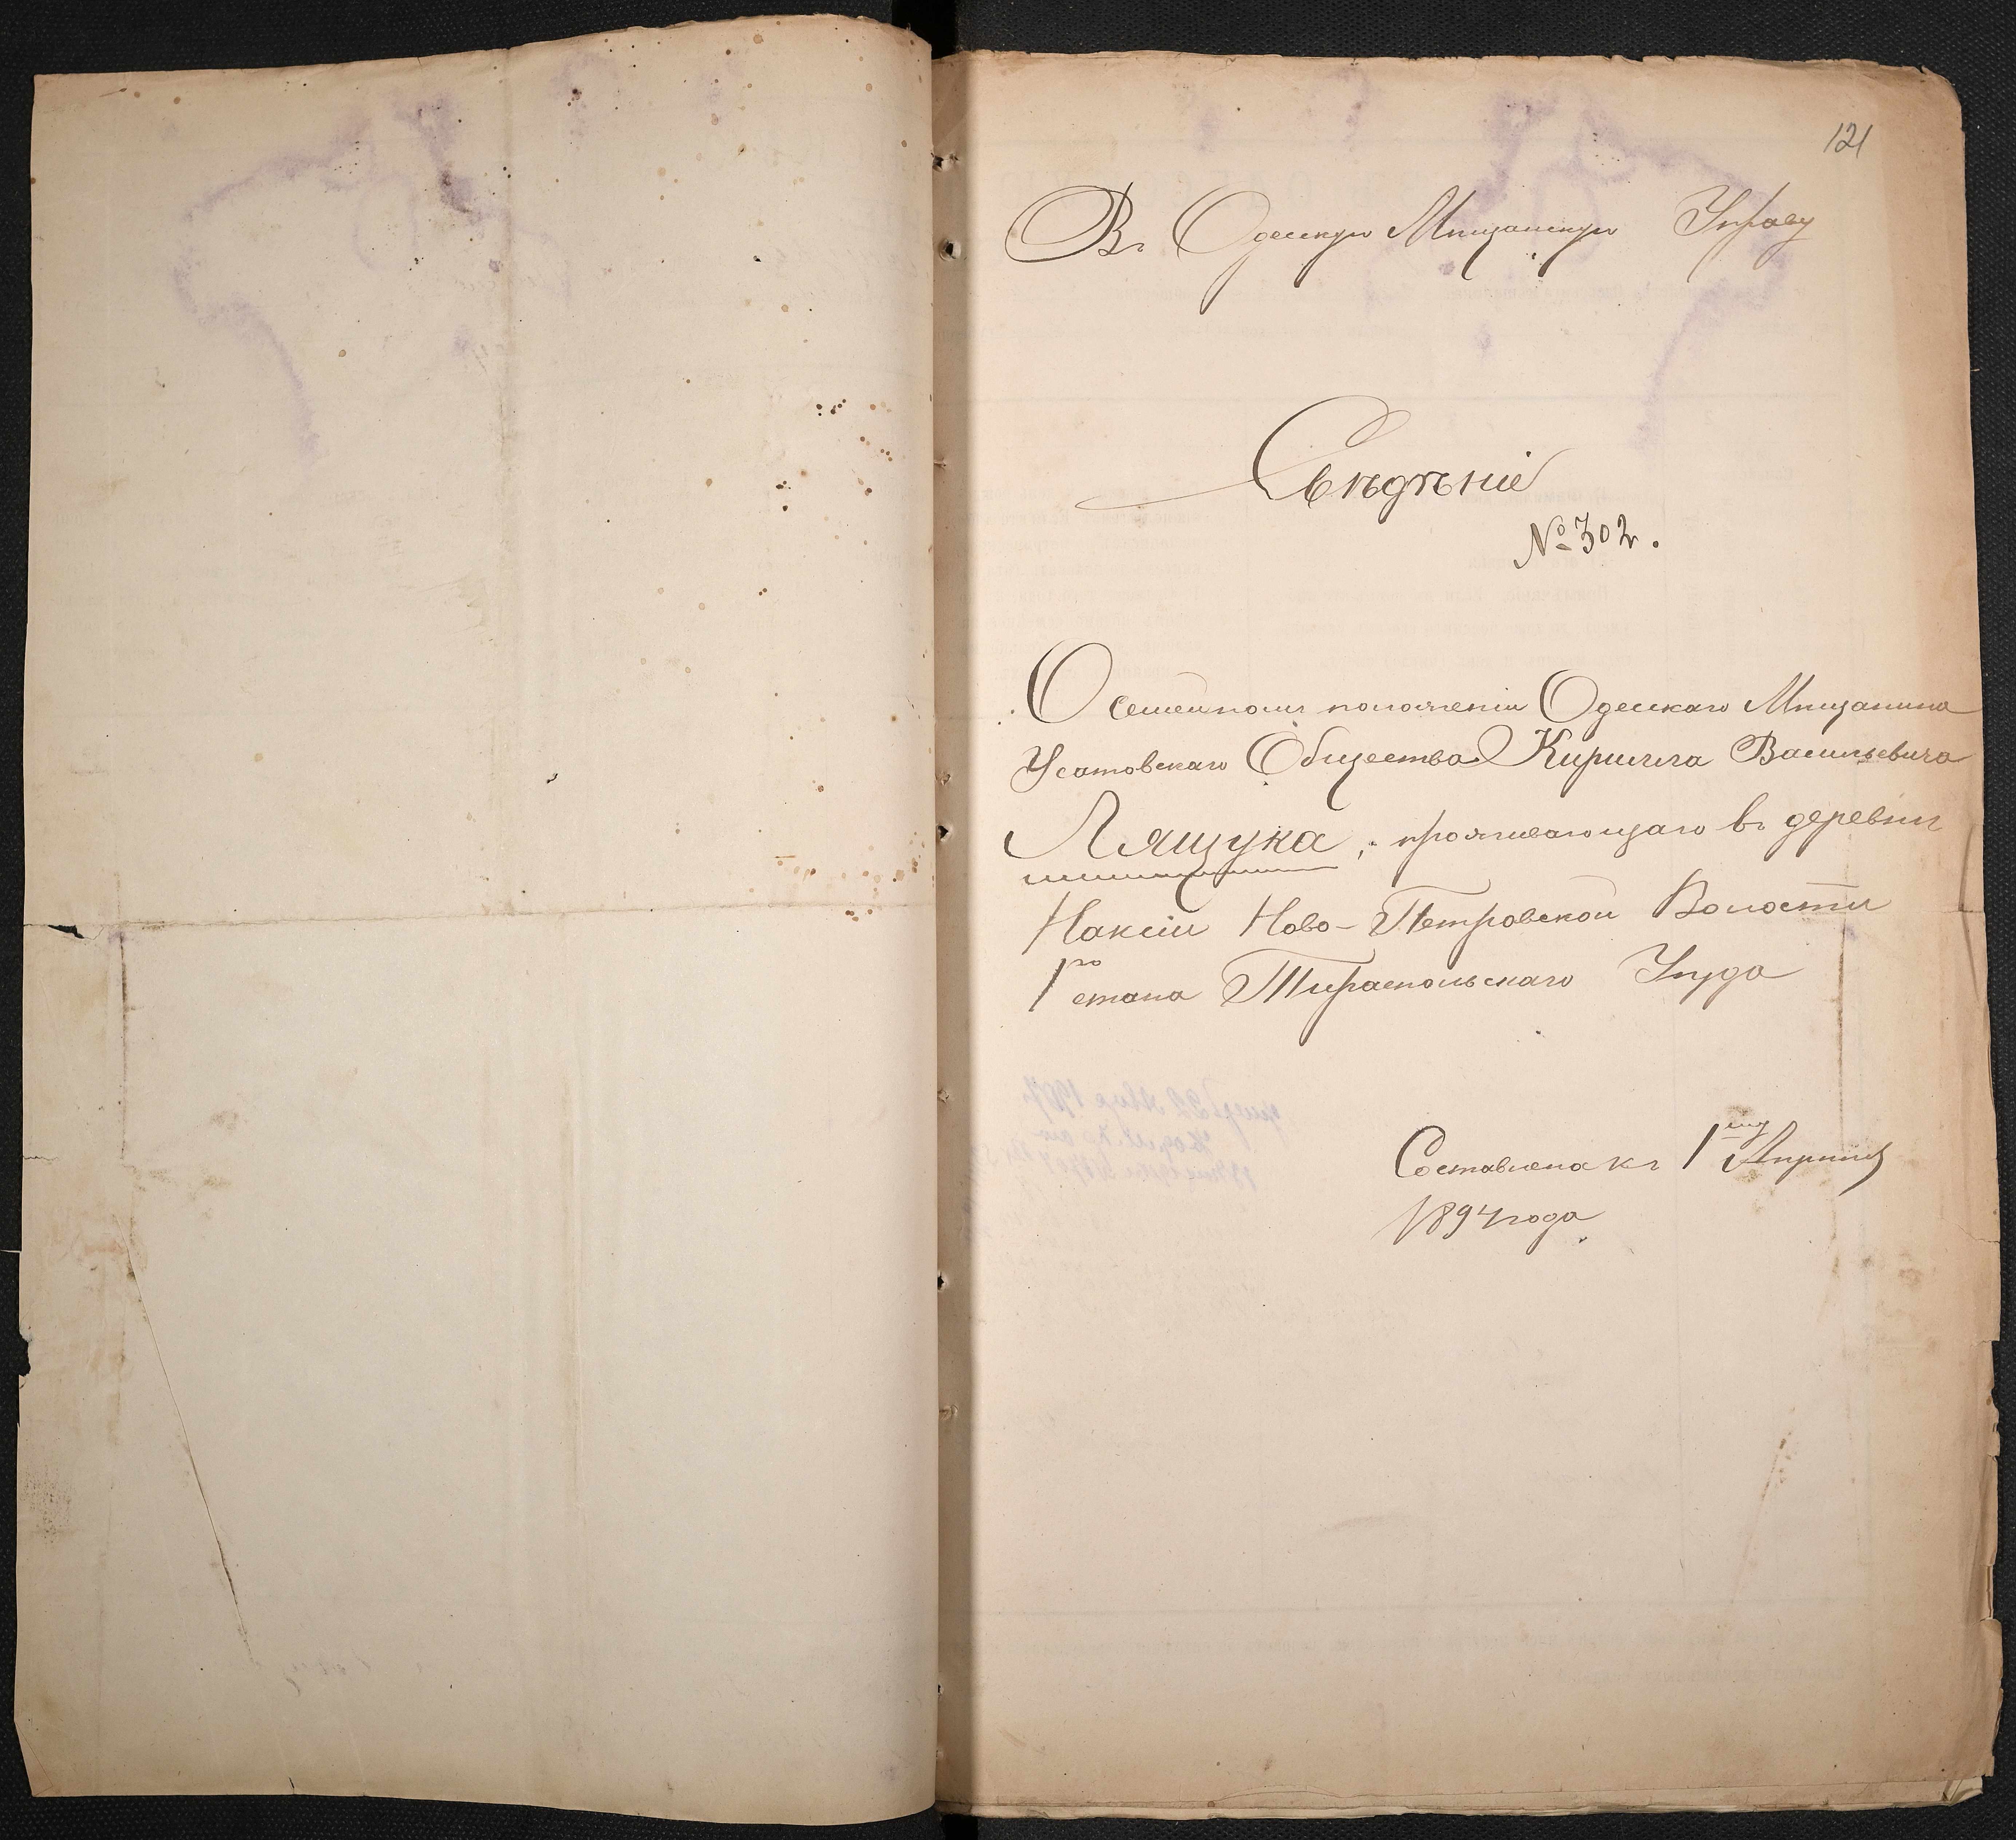 121
Въ Одесскую Мѣщанскую Управу
Свѣдѣніе
№ 302.
О семейномъ положеніи Одесскаго Мѣщанина
Усатовскаго Общества Кирилла Васильевича
Лящука, проживающаго въ деревни
Наксіи Ново-Петровской Волости
1го стана Тираспольскаго Уѣзда
Составлена къ 1му Апрѣля
1894 года